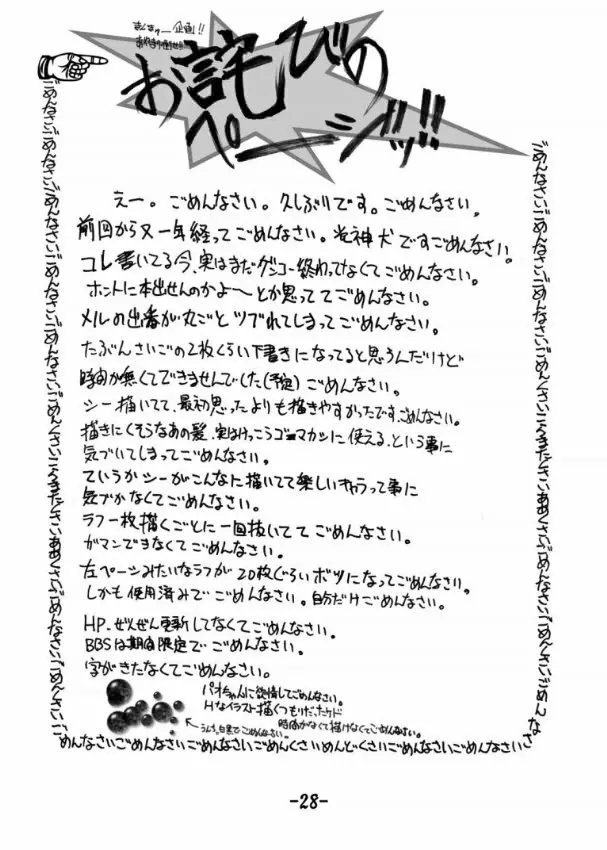 まんきゅー企画!!
お詫びの
ページッ!!
えー。ごめんなさい。久しぶりです。ごめんなさい。
前回から又一年経ってごめんなさい。光神犬ですごめんなさい。
コレ書いてる今、実はまだゲンコー終わってなくてごめんなさい。
ホントに本出せんのかよ〜とか思っててごめんなさい。
メルの出番が丸ごとツブれてしまってごめんなさい。
たぶんさいごの2枚くらい下書きになってると思うんだけど
時間が無くてできませんでした(予定)ごめんなさい。
シー描いてて、最初思ったよりも描きやすかったです、ごめんなさい。
描きにくそうなあの髪、実はけっこうゴマカシに使える、という事に
気づいてしまってごめんなさい。
ていうかシーがこんなに描いてて楽しいキャラって事に
気づかなくてごめんなさい。
ラフ一枚描くごとに一回抜いててごめんなさい。
ガマンできなくてごめんなさい。
左ページみたいなラフが20枚ぐらいボツになってごめんなさい。
しかも使用済みでごめんなさい。自分だけごめんなさい。
HP、ぜんぜん更新してなくてごめんなさい。
BBSは期間限定でごめんなさい。
字がきたなくてごめんなさい。
パオちゃんに欲情してごめんなさい。
Hなイラスト描くつもりだったけど
時間がなくて描けなくてごめんなさい。
ごめんなさいごめんなさいごめんなさいごめんくさいめんどくさいごめんなさいごめんなさい
-28-